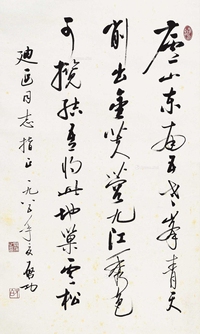 廬山東南五老峯青天
削出金芙蓉九江秀色
可攬結吾將此地巢雲松
同志指正一九八年夏啓功